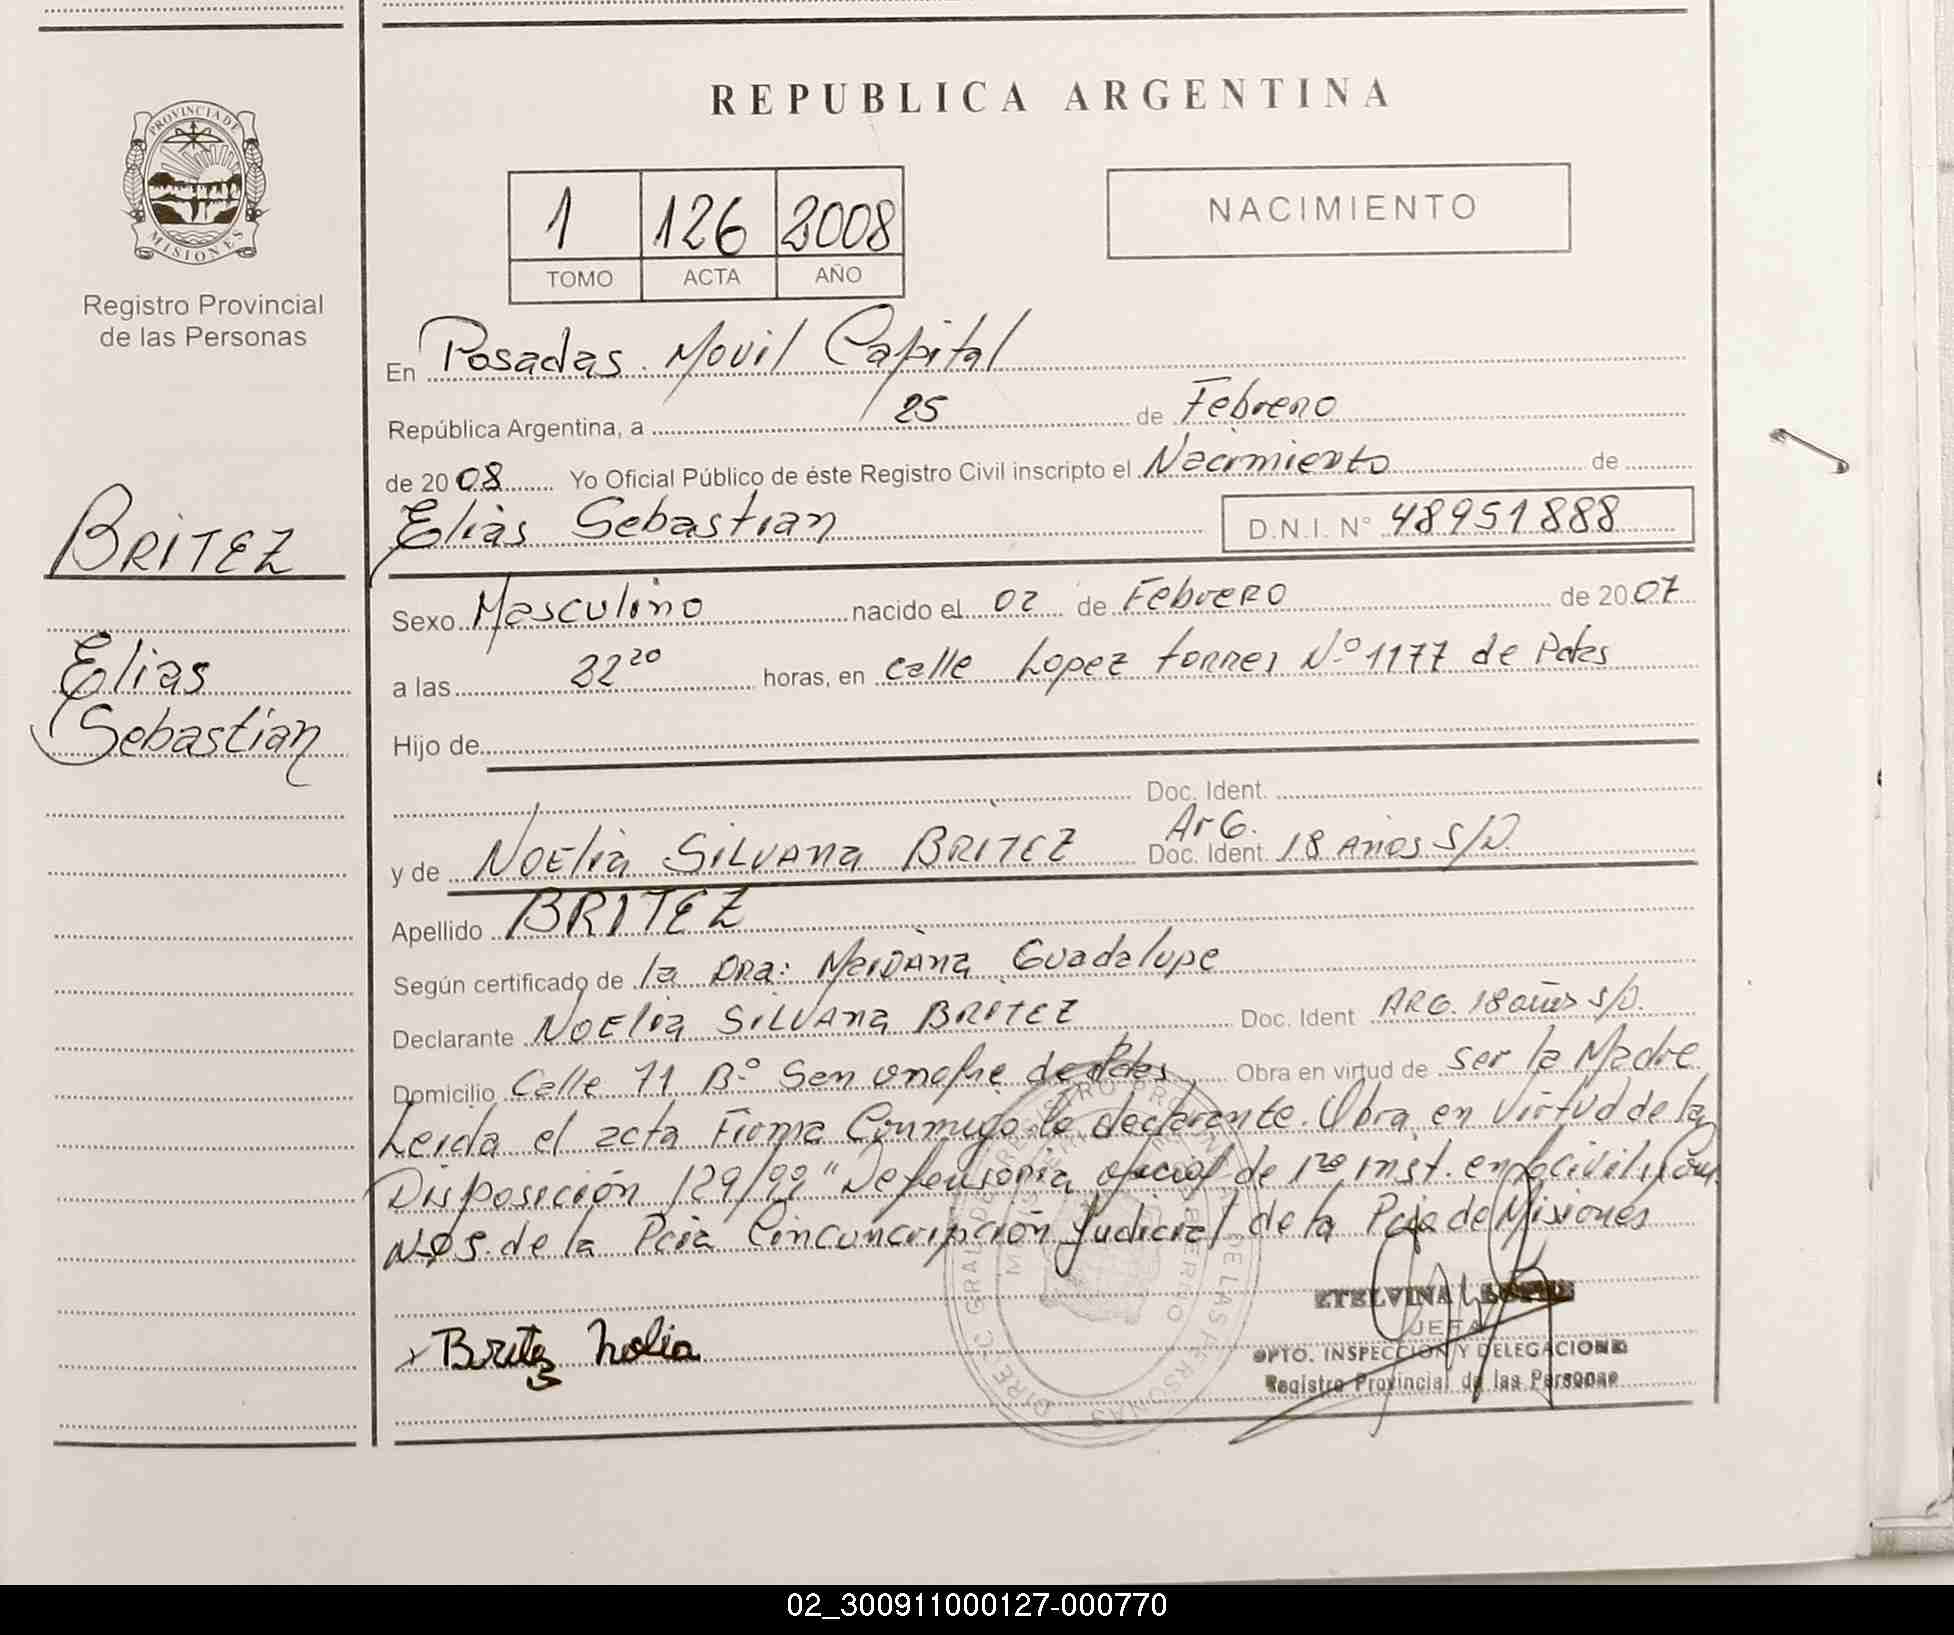 REPUBLICA ARGENTINA
PROVINCIA DE
MISIONES
Registro Provincial
de las Personas
1 126 2008
TOMO ACTA AÑO
NACIMIENTO
En Posadas. Movil Capital
República Argentina, a 25 de Febrero
de 2008 Yo Oficial Público de éste Registro Civil inscripto el Nacimiento de
Elias Sebastian D.N.I. N° 48951888
BRITEZ
Elias
Sebastian
Sexo Masculino nacido el 02 de FebrERO de 2007
a las 22 20 horas, en calle Lopez torres Nº 1177 de Pdas
Hijo de
Doc. Ident.
y de NOElia SILVANA BRITEZ ArG. Doc. Ident. 18 años S/D.
Apellido BRITEZ
Según certificado de la DRA: Guadalupe
Declarante NOElia SILVANA BRITEZ Doc. Ident ARG. 18 años S/D.
Domicilio Calle 71 Bº San onofre de Pdas Obra en virtud de ser la Madre
Leida el acta Firma Conmigo la declarante. Obra en virtud de la
Disposición 129/99 "Defensoria oficial de 1ra inst. en lo civil y Com.
Nº 5. de la Circuncripción Judicial de la Pcia de Misiones
x Britez Nolia
ETELVINA
JEFA
DPTO. INSPECCION Y DELEGACIONES
Registro Provincial de las Personas
DIREC. GRAL. DEL REGISTRO PROVINCIAL DE LAS PERSONAS
02_300911000127-000770